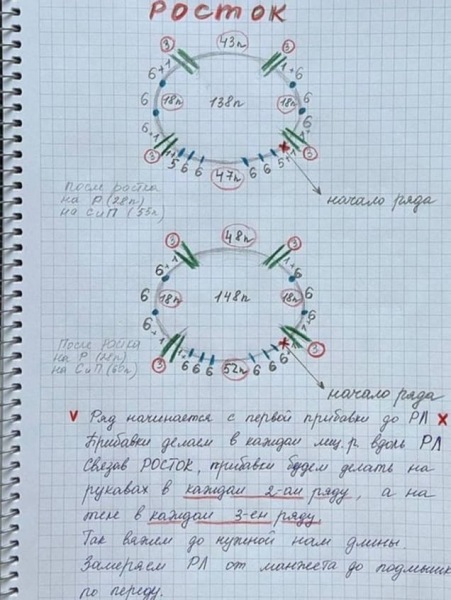 РОСТОК
3 43п 3
6+1 1+6
6 18п 138п 18п 6
6 6
6+1 1+6
3 1+5 6 6 47п 6 6 5+1 3
После ростка
на Р (28п)
на С и П (55п)
начало ряда
3 48п 3
6+1 1+6
6 18п 148п 18п 6
6+1 1+6
3 6 6 6 52п 6 6 6+1 3
После
на Р (28п)
на С и П (60п)
начало ряда
V Ряд начинается с первой прибавки до РЛ X
Прибавки делаем в каждом лиц.р. вдоль РЛ
Связав РОСТОК, прибавки будем делать на
рукавах в каждом 2-ом ряду, а на
теле в каждом 3-ем ряду.
Так вяжем до нужной нам длины.
Замеряем РЛ от манжета до подмышк
по переду.